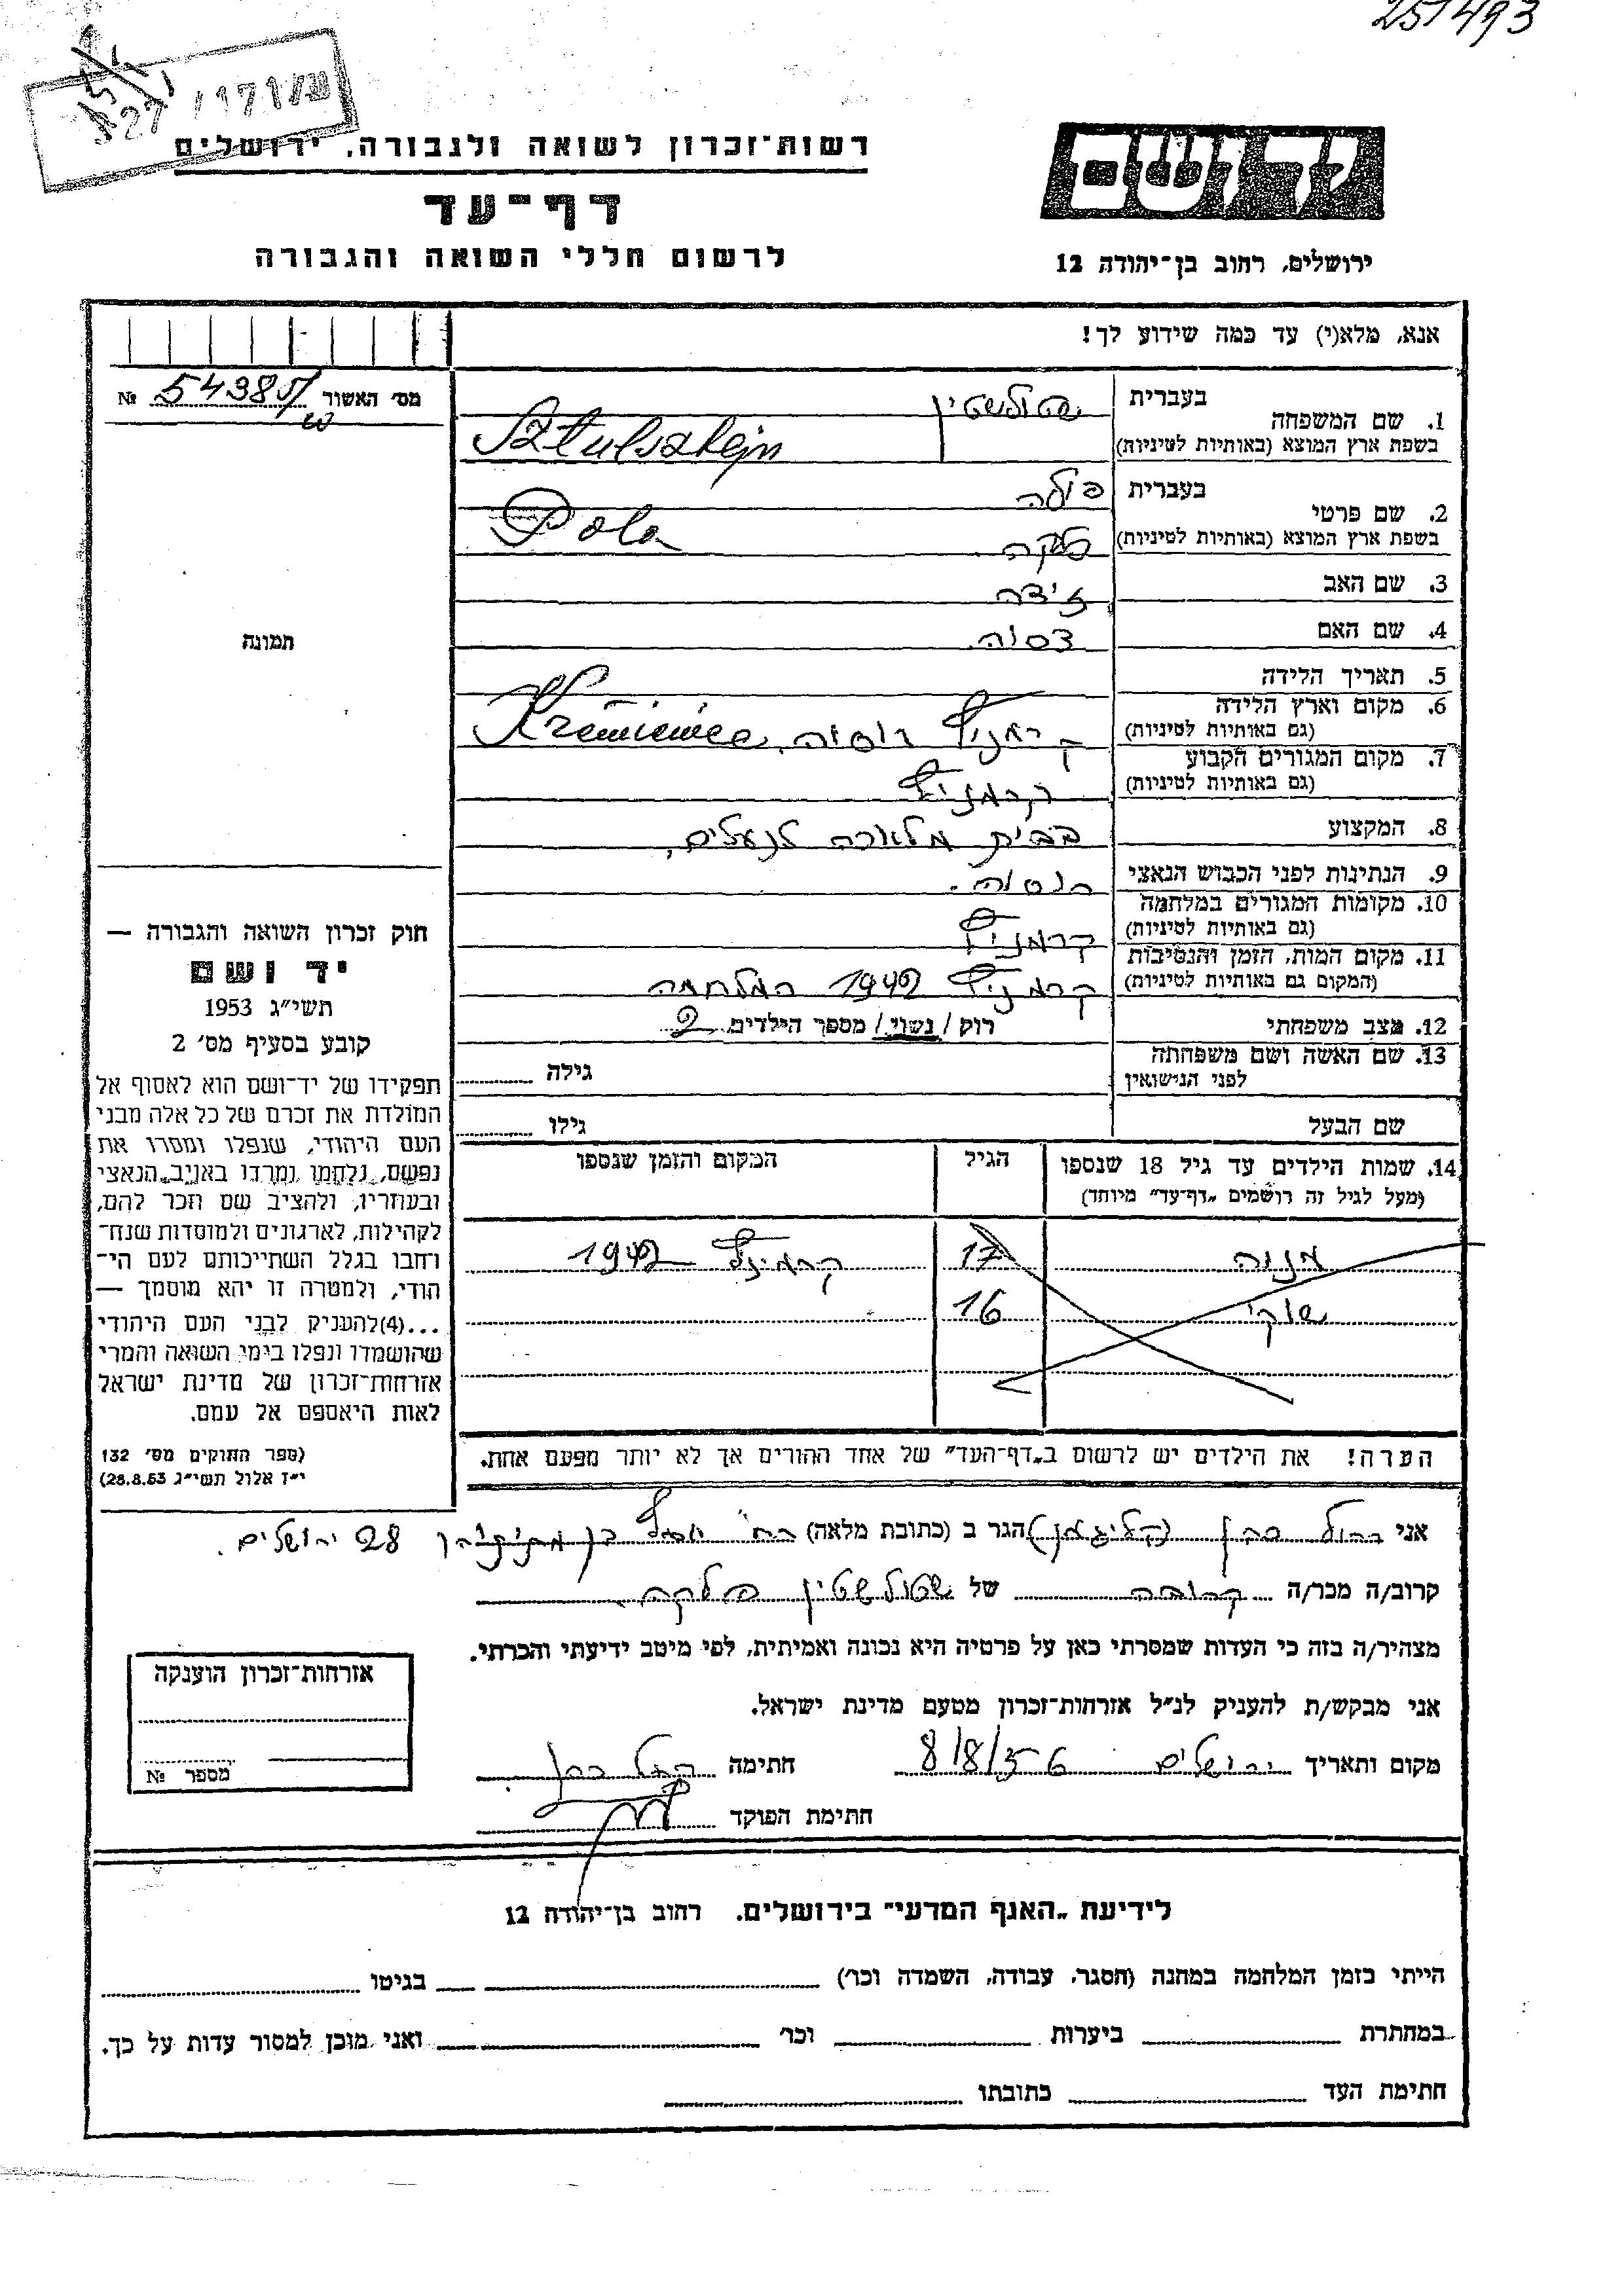 251493
ש/171/27
רשות־זכרון לשואה ולגבורה, ירושלים
דף־עד
לרשום חללי השואה והגבורה
יד ושם
ירושלים, רחוב בן־יהודה 12
אנא, מלא(י) עד כמה שידוע לך!
מס׳ האשור 54385 №
1. שם המשפחה
בעברית שטולשטין
בשפת ארץ המוצא (באותיות לטיניות) Sztulsztejn
2. שם פרטי
בעברית פולה
בשפת ארץ המוצא (באותיות לטיניות) Pola
3. שם האב זיידה
4. שם האם
5. תאריך הלידה
6. מקום וארץ הלידה
(גם באותיות לטיניות) רוסיה, Krzemieniec
7. מקום המגורים הקבוע
(גם באותיות לטיניות) קרמניץ
8. המקצוע בבית מלאכה לנעלים,
9. הנתינות לפני הכבוש הנאצי
10. מקומות המגורים במלחמה
(גם באותיות לטיניות) קרמניץ
11. מקום המות, הזמן והנסיבות
(המקום גם באותיות לטיניות) קרמניץ 1942 המלחמה
12. מצב משפחתי רוק / נשוי / מספר הילדים 2
13. שם האשה ושם משפחתה
לפני הנישואין גילה
שם הבעל גילו
14. שמות הילדים עד גיל 18 שנספו
(מעל לגיל זה רושמים „דף־עד״ מיוחד)
הגיל
המקום והזמן שנספו
17 קרמניץ 1942
16
הערה! את הילדים יש לרשום ב„דף־העד״ של אחד ההורים אך לא יותר מפעם אחת.
תמונה
חוק זכרון השואה והגבורה —
יד ושם
תשי״ג 1953
קובע בסעיף מס׳ 2
תפקידו של יד־ושם הוא לאסוף אל
המולדת את זכרם של כל אלה מבני
העם היהודי, שנפלו ומסרו את
נפשם, נלחמו ומרדו באויב הנאצי
ובעוזריו, ולהציב שם וזכר להם,
לקהילות, לארגונים ולמוסדות שנח־
רבו בגלל השתייכותם לעם הי־
הודי, ולמטרה זו יהא מוסמך —
...(4)להעניק לבני העם היהודי
שהושמדו ונפלו בימי השואה והמרי
אזרחות־זכרון של מדינת ישראל
לאות היאספם אל עמם.
(ספר החוקים מס׳ 132
י״ז אלול תשי״ג 28.8.53)
אני רחל כהן (קליגמן) הגר ב (כתובת מלאה) רח׳ 28 ירושלים.
קרוב/ה מכר/ה קרובה של שטולשטין
מצהיר/ה בזה כי העדות שמסרתי כאן על פרטיה היא נכונה ואמיתית, לפי מיטב ידיעתי והכרתי.
אני מבקש/ת להעניק לנ״ל אזרחות־זכרון מטעם מדינת ישראל.
מקום ותאריך ירושלים 8/8/56 חתימה רחל כהן
חתימת הפוקד
אזרחות־זכרון הוענקה
מספר №
לידיעת „האגף המדעי״ בירושלים. רחוב בן־יהודה 12
הייתי בזמן המלחמה במחנה (הסגר, עבודה, השמדה וכו׳) בגיטו
במחתרת ביערות וכו׳ ואני מוכן למסור עדות על כך.
חתימת העד כתובתו